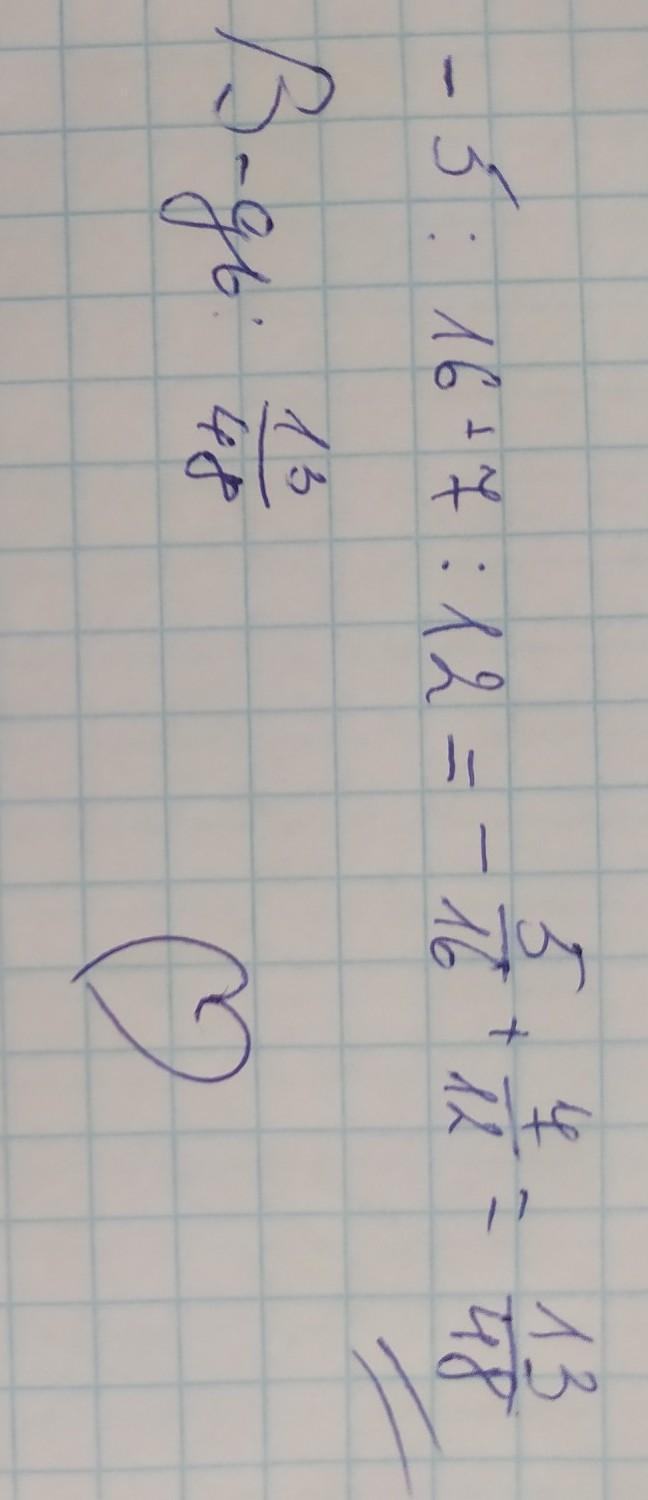 - 5 : 16 + 7 : 12 = - 5/16 + 7/12 = 13/48
В-дь: 13/48